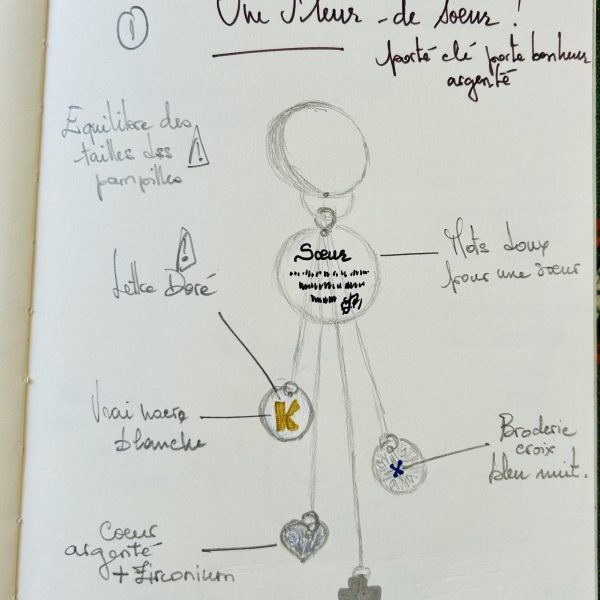 1
Une Fleur-de Soeur !
porté clé porte bonheur
argenté
Equilibre des
tailles des
pampilles
!
Sœur
Mots doux
pour une sœur
!
Lettre Doré
K
Vrai nacre
blanche
Broderie
croix
bleu nuit.
Coeur
argenté
+ Zirconium